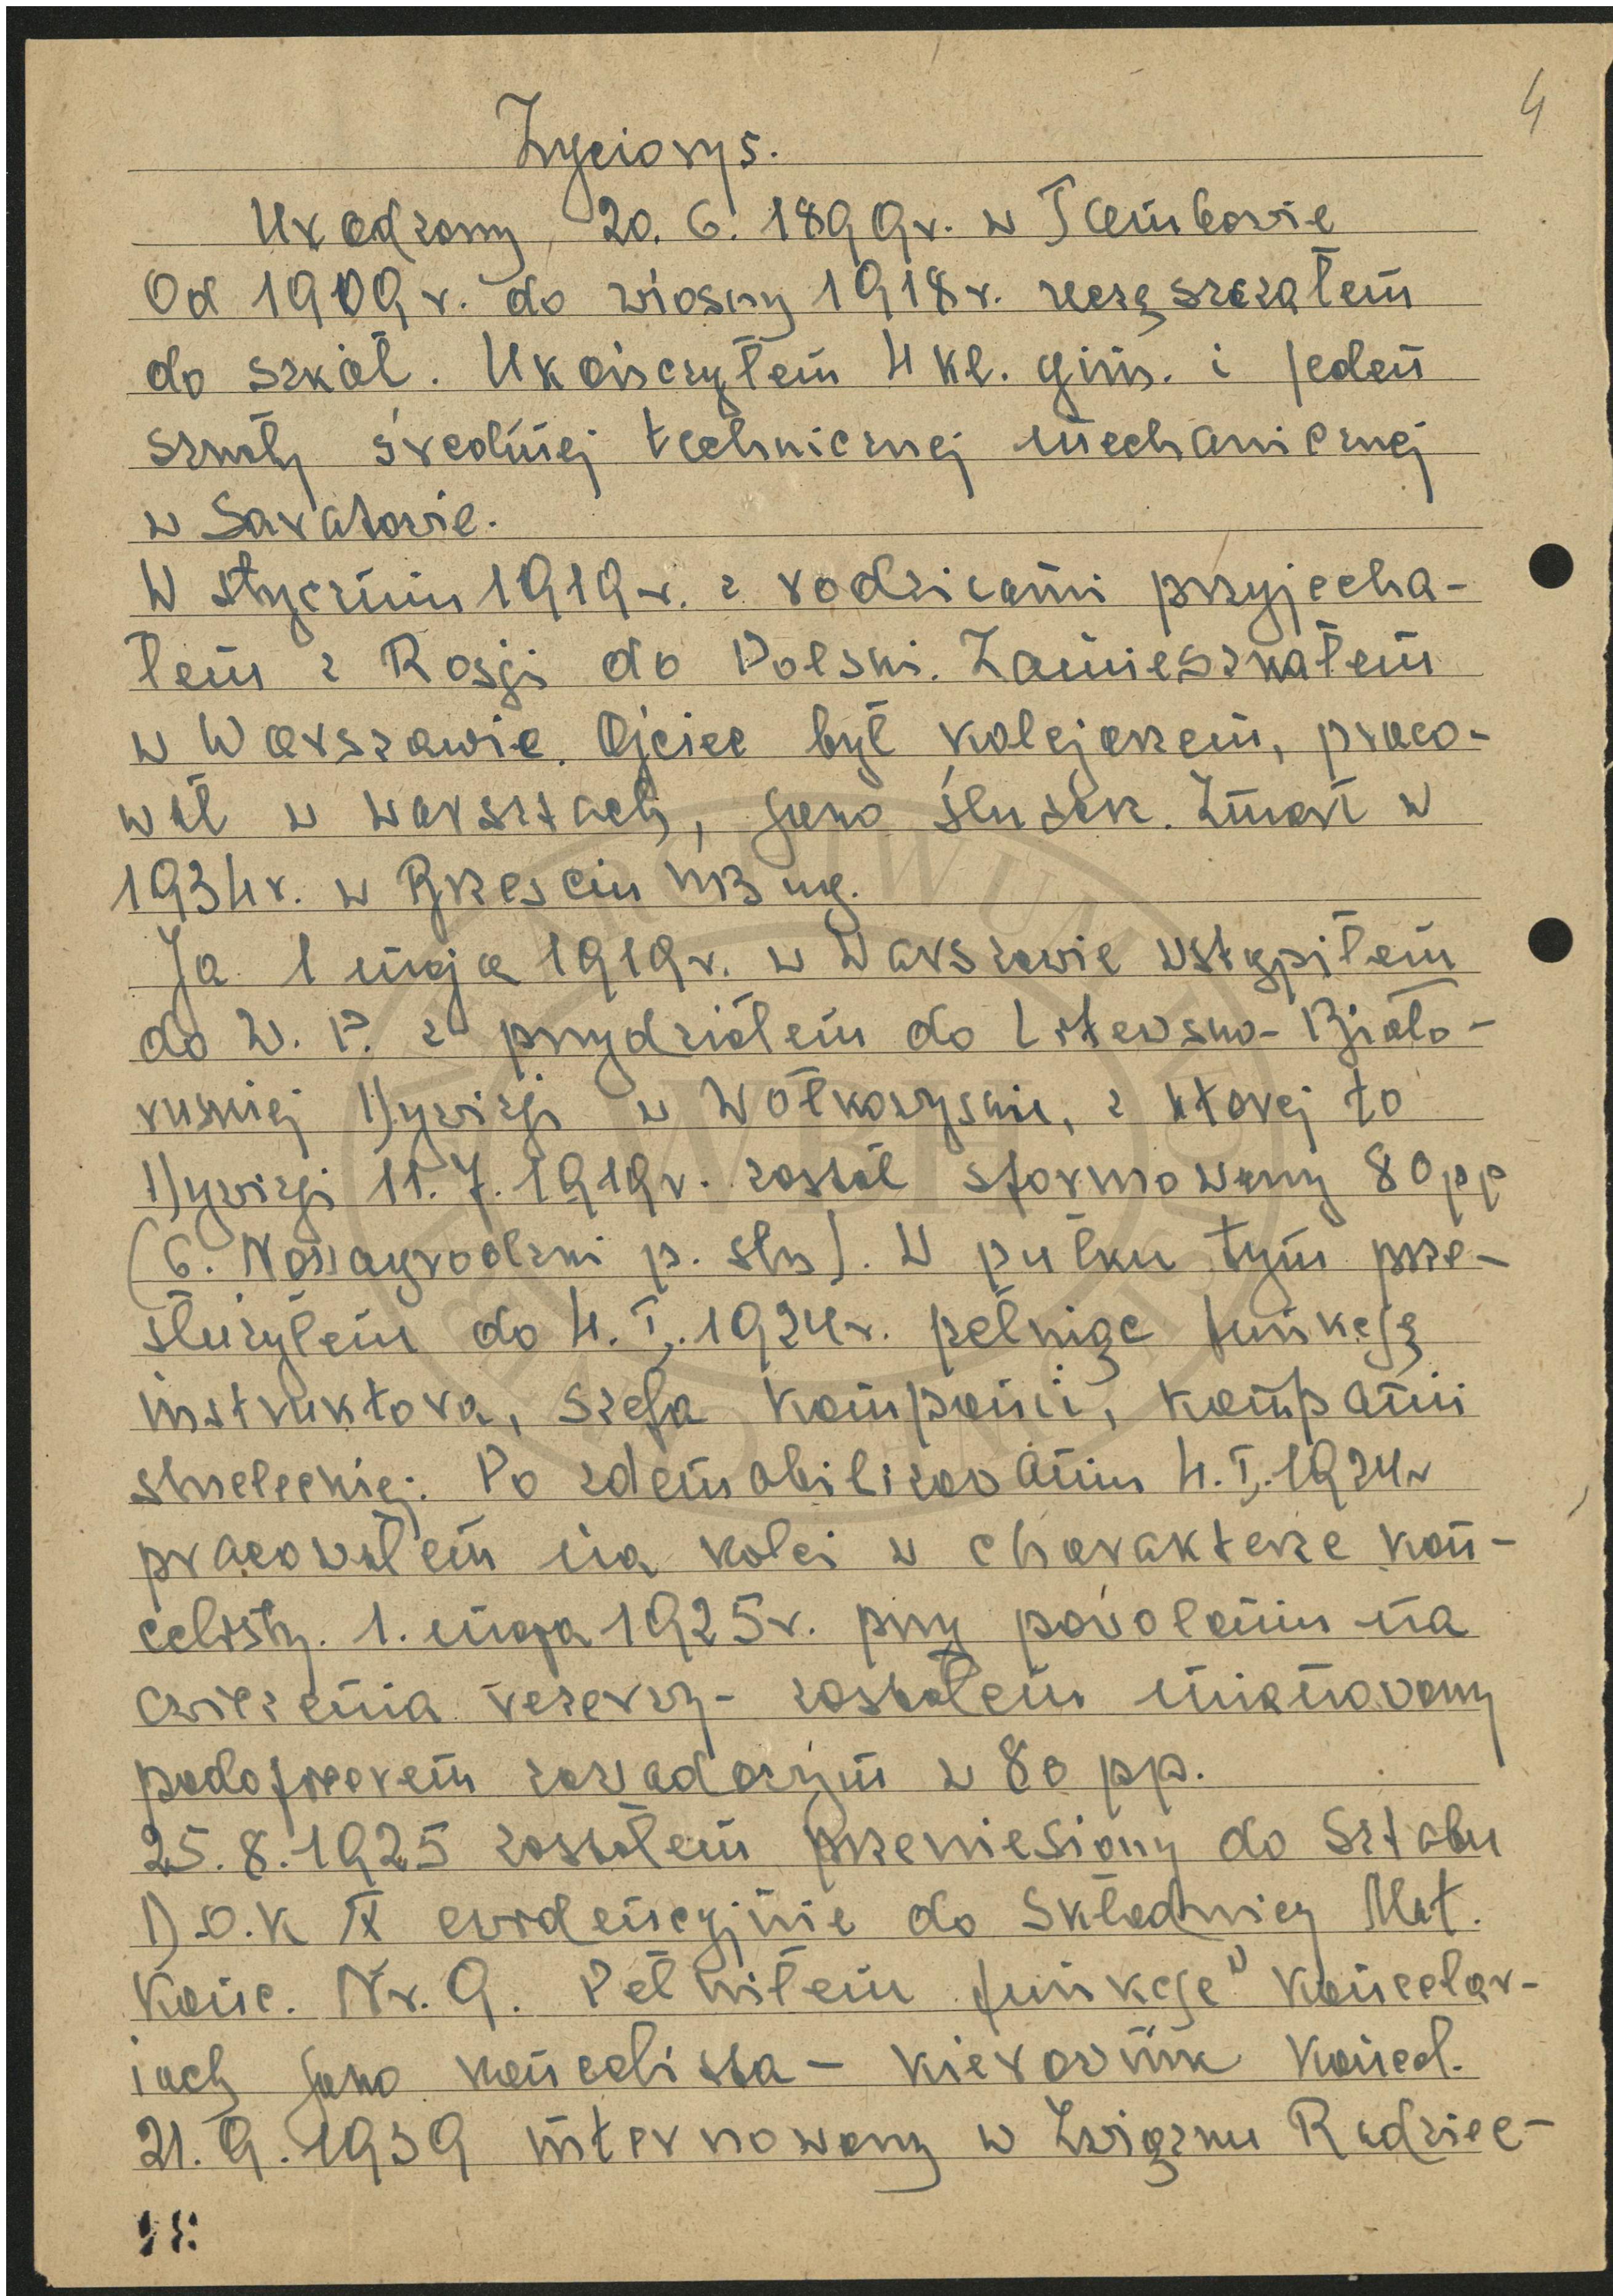 4
Życiorys.
Urodzony 20. 6. 1899r. w Tambowie
Od 1909 r. do wiosny 1918 r. uczęszczałem
do szkół. Ukończyłem 4 kl. gimn. i jeden
szkoły średniej technicznej mechanicznej
w Saratowie.
W styczniu 1919 r. z rodzicami przyjecha-
łem z Rosji do Polski. Zamieszkałem
w Warszawie. Ojciec był kolejarzem, praco-
wał w warsztach, jako ślusarz. Zmarł w
1934 r. w Brześciu n/Bug.
Ja 1 maja 1919 r. w Warszawie wstąpiłem
do W. P. z przydziałem do Litewsko-Biało-
ruskiej Dywizji w Wołkowysku, z której to
Dywizji 11. 7. 1919 r. został sformowany 80 pp
(6. Nowogrodzki p. stn). W pułku tym prze-
służyłem do 4. I. 1924 r. pełniąc funkcję
instruktora, szefa kompanii, kompanii
strzeleckiej. Po zdemobilizowaniu 4. I. 1924 r
pracowałem na kolei w charakterze kan-
celisty. 1. maja 1925 r. przy powołaniu na
cwiczenia rezerwy - zostałem mianowany
podoficerem zawadowym w 80 pp.
25. 8. 1925 zostałem przeniesiony do Sztabu
D.O.K IX ewidencyjnie do Składnicy Mat.
Kanc. Nr. 9. Pełniłem funkcje w kancelar-
iach jako kancelista - kierownik kancel.
21. 9. 1939 internowany w Związku Radziec-
WBH